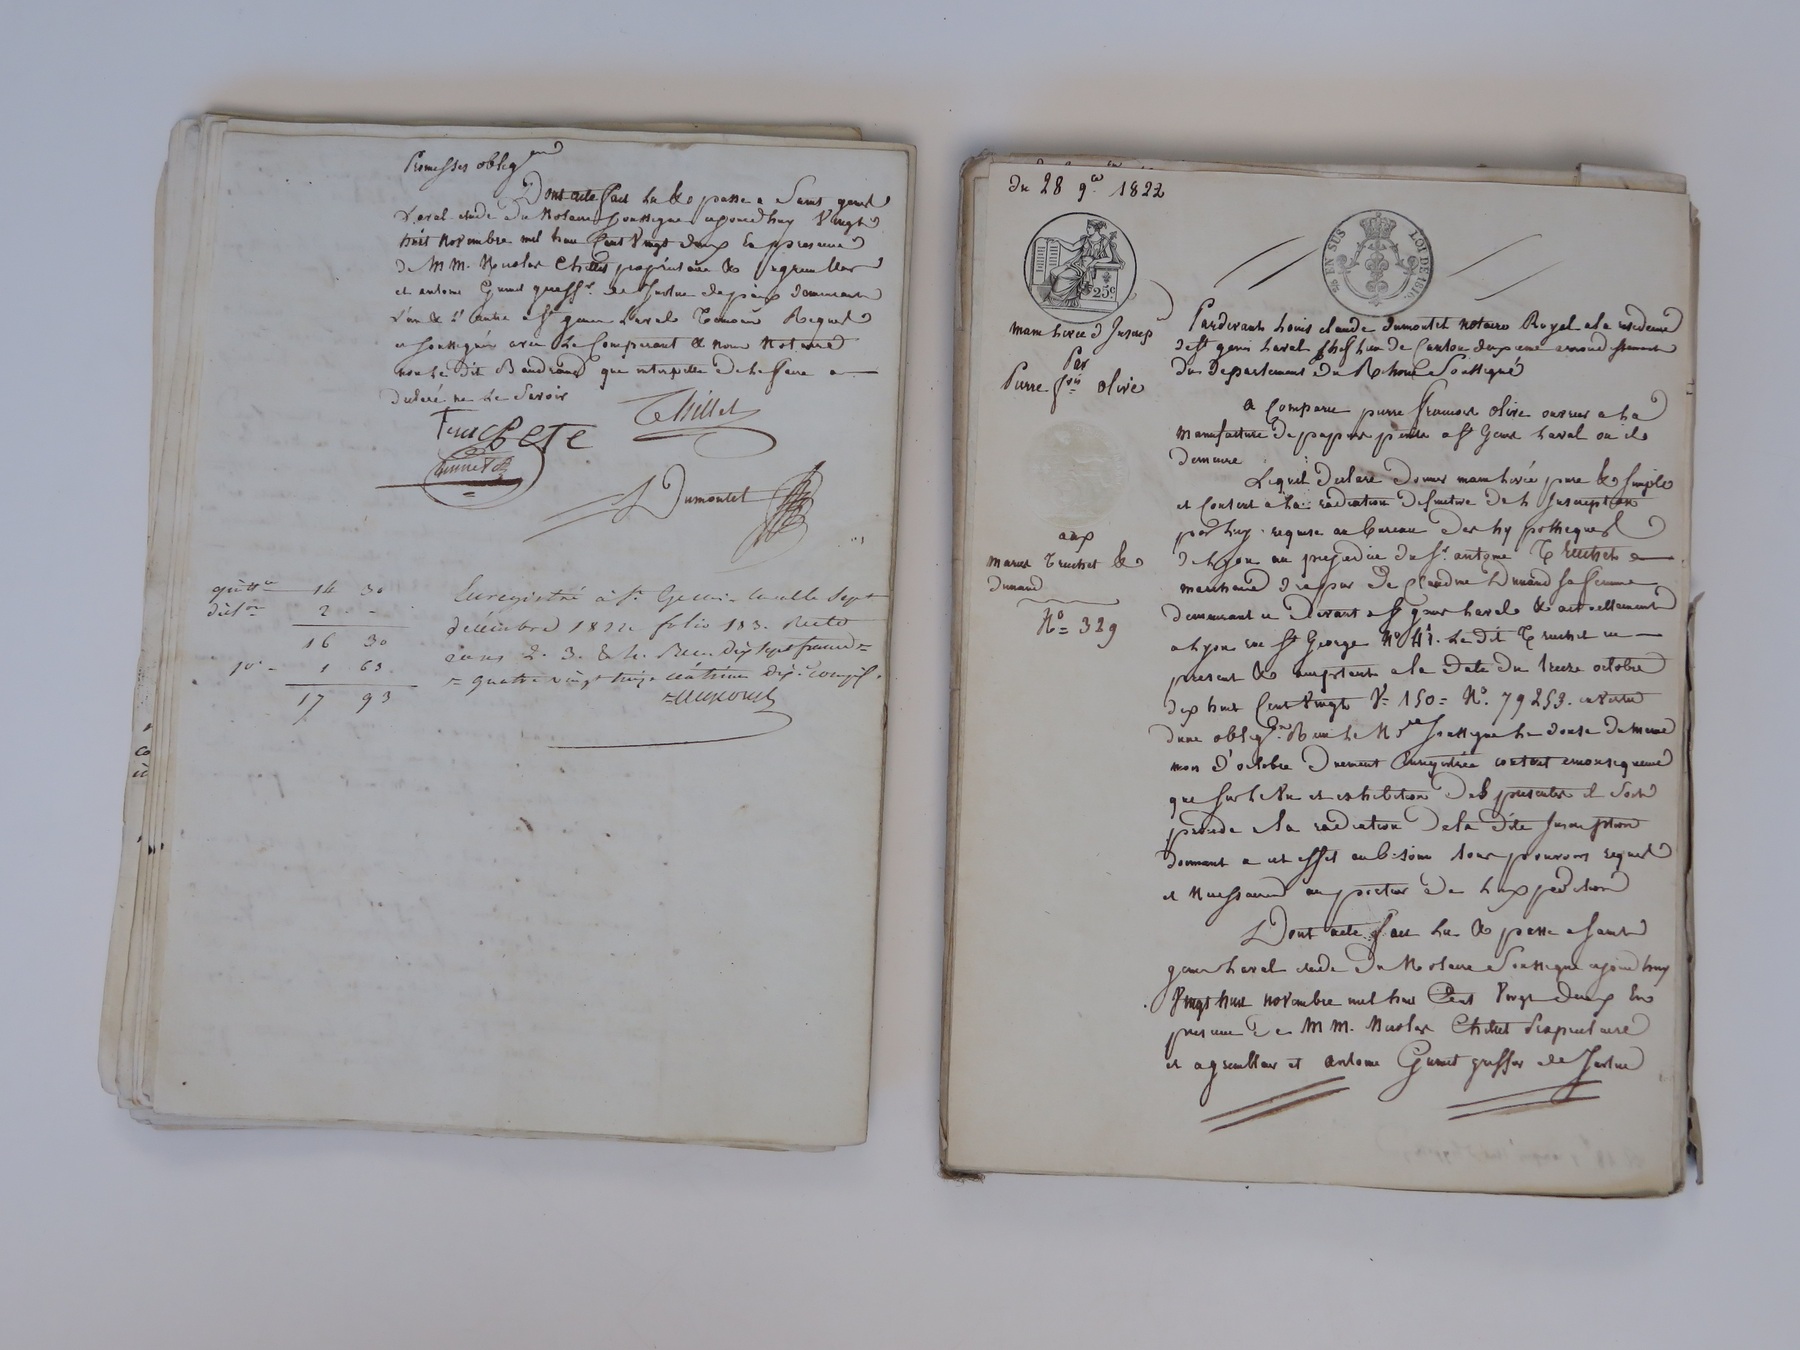 Promesses obligon
Dont acte fait lu & passé a Saint genis
Laval etude du Notaire soussigné aujourdhuy Vingt
huit Novembre mil huit Cent Vingt deux En presence
de MM. Nicolas thillet propriétaire &
et antoine Guinet greffr. de Justice de paix demeurant
L'un & L'autre a St genis Laval Temoins Requis
et soussignés avec Le Comparant & Nous Notaire
non Le dit Baudrand qui interpellé de le faire a
declaré ne Le Savoir
Thillet
Guinet
Dumontet
quittce 14 30
2 - -
16 30
10e - 1 63
17 93
Enregistré à St. Genis-Laval le sept
décembre 1822 folio 183. Recto
cases 2. 3. & 4. Reçu dix sept francs
quatre vingt treize centimes dixe. compis.
du 28 9re 1822
25c
EN SUS
LOI DE 1816.
main Levée d'Inscrip
Par
Pierre frois Olive
aux
mariés Truchet &
Dunand
No= 329
Pardevant Louis claude Dumontet Notaire Royal a la residence
de St genis Laval chef lieu de Canton deuxieme arrondissement
du Departement du Rhône Soussigné
A Comparu pierre francois Olive ouvrier a la
manufacture de papiers peints a St Genis Laval ou il
demeure
Lequel declare donner main levée pure & simple
et Consent a la radiation definitive de L Inscription
par Luy requise au bureau des hypotheques
de Lyon au prejudice du Sr. antoine Truchet
marchand drapier & de Claudine Dunand sa femme
demeurant cy Devant a St genis Laval & actuellement
a Lyon rue St George No 41. Le dit Truchet cy
present & acceptant a la date du treize octobre
dix huit Cent Vingt V= 150= No. 79253. en vertu
d'une obligon. Reçue Le Nre soussigné Le douze du meme
mois d'octobre duement Enregistrée
que sur le Vu et exhibition des presentes il soit
procede a la radiation de la dite Inscription
donnant a cet effet au b. tous pouvoirs requis
et Necessaires au porteur de L expedition
Dont acte fait lu & passé a Saint
genis Laval etude du Notaire Soussigné aujourdhuy
Vingt huit novembre mil huit Cent Vingt deux En
presence de MM. Nicolas thillet
et antoine Guinet greffier de Justice